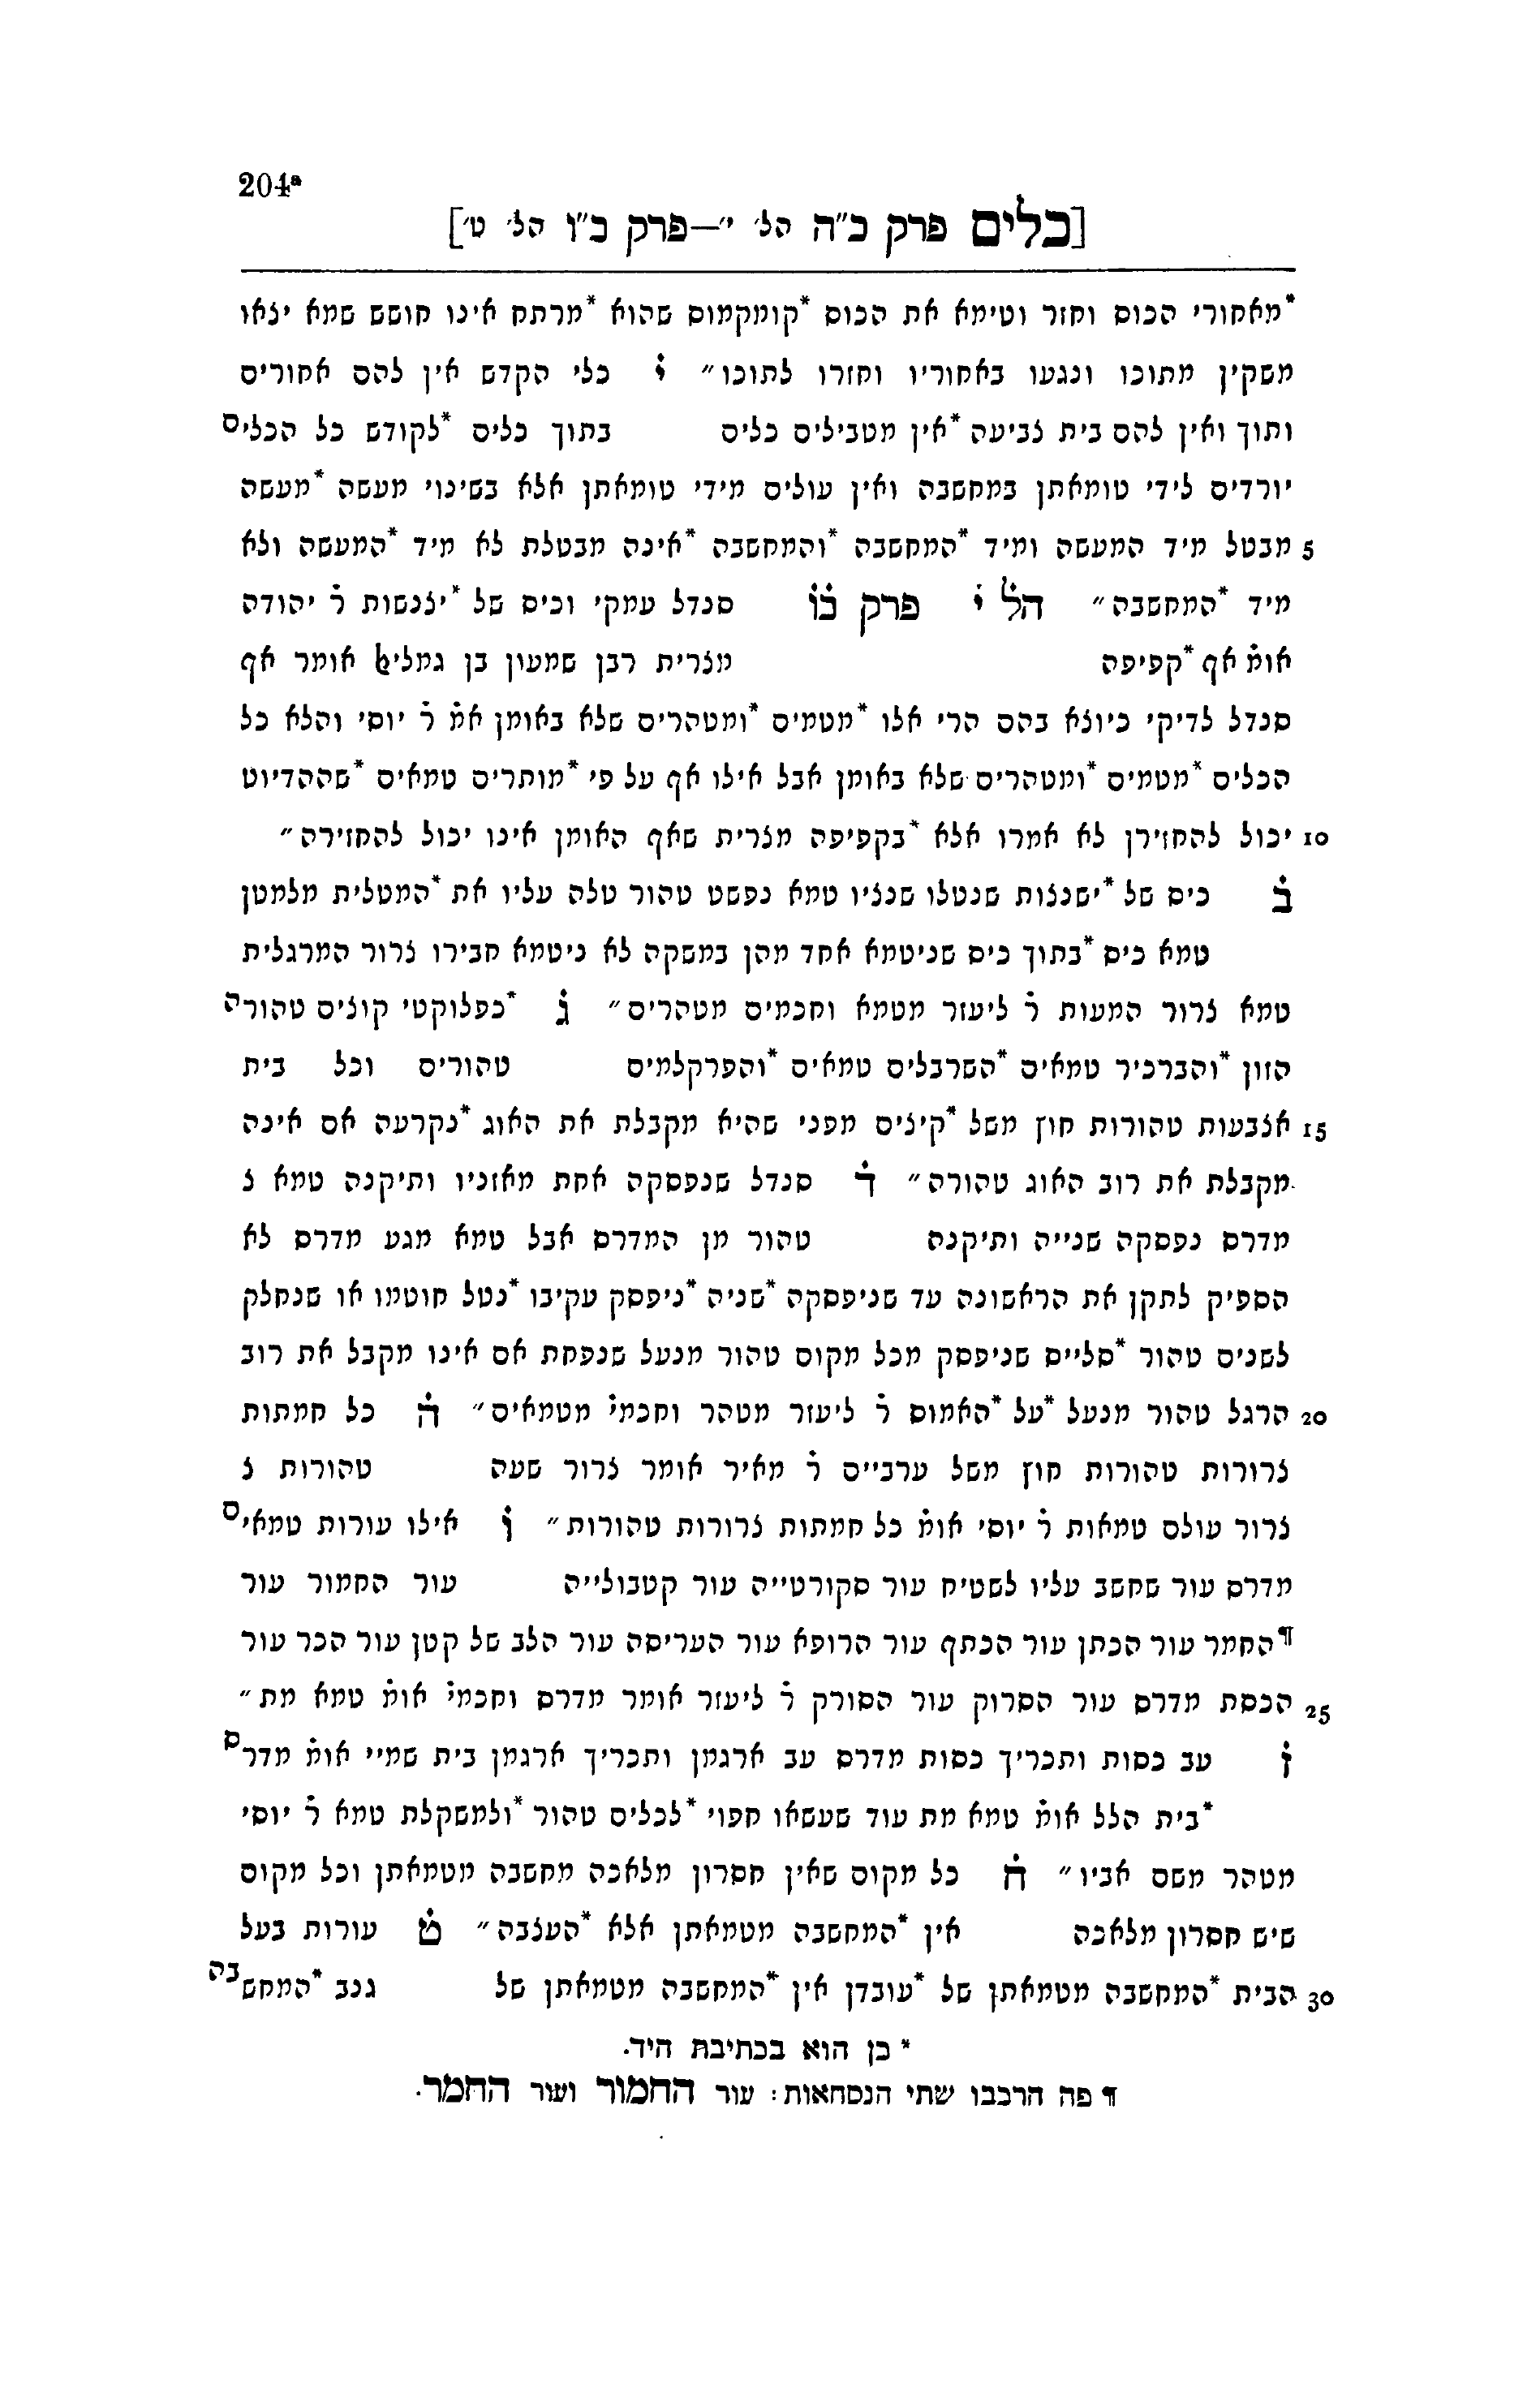 204ª
[כלים פרק כ״ה הל׳ י׳—פרק כ״ו הל׳ ט׳]
*מאחורי הכוס וחזר וטימא את הכוס *קומקמוס שהוא *מרתח אינו חושש שמא יצאו
משקין מתוכו ונגעו באחוריו וחזרו לתוכו״ י̇ כלי הקדש אין להם אחורים
ותוך ואין להם בית צביעה *אין מטבילים כלים בתוך כלים *לקודש כל הכלים
יורדים לידי טומאתן במחשבה ואין עולים מידי טומאתן אלא בשינוי מעשה *מעשה
5 מבטל מיד המעשה ומיד *המחשבה *והמחשבה *אינה מבטלת לא מיד *המעשה ולא
מיד *המחשבה״ הל י̇ פרק כ̇ו̇ סנדל עמקי וכיס של *יצנשות ר̇ יהודה
אומ̇ אף *קפיפה מצרית רבן שמעון בן גמליאל אומר אף
סנדל לדיקי כיוצא בהם הרי אלו *מטמים *ומטהרים שלא באומן אמ̇ ר̇ יוסי והלא כל
הכלים *מטמים *ומטהרים שלא באומן אבל אילו אף על פי *מותרים טמאים *שההדיוט
10 יכול להחזירן לא אמרו אלא *בקפיפה מצרית שאף האומן אינו יכול להחזירה״
ב̇ כיס של *ישנצות שנטלו שנציו טמא נפשט טהור טלה עליו את *המטלית מלמטן
טמא כיס *בתוך כיס שניטמא אחד מהן במשקה לא ניטמא חבירו צרור המרגלית
טמא צרור המעות ר̇ ליעזר מטמא וחכמים מטהרים״ ג̇ *כפלוקטי קוצים טהורה
הזון *והברכיר טמאים *השרבלים טמאים *והפרקלמים טהורים וכל בית
15 אצבעות טהורות חוץ משל *קיצים מפני שהיא מקבלת את האוג *נקרעה אם אינה
מקבלת את רוב האוג טהורה״ ד̇ סנדל שנפסקה אחת מאזניו ותיקנה טמא צ
מדרס נפסקה שנייה ותיקנה טהור מן המדרס אבל טמא מגע מדרס לא
הספיק לתקן את הראשונה עד שניפסקה *שניה *ניפסק עקיבו *נטל חוטמו או שנחלק
לשנים טהור *סליים שניפסק מכל מקום טהור מנעל שנפחת אם אינו מקבל את רוב
20 הרגל טהור מנעל *על *האמוס ר̇ ליעזר מטהר וחכמי̇ מטמאים״ ה̇ כל חמתות
צרורות טהורות חוץ משל ערביים ר̇ מאיר אומר צרור שעה טהורות צ
צרור עולם טמאות ר̇ יוסי אומ̇ כל חמתות צרורות טהורות״ ו̇ אילו עורות טמאים
מדרס עור שחשב עליו לשטיח עור סקורטייה עור קטבולייה עור החמור עור
¶החמר עור הכתן עור הכתף עור הרופא עור העריסה עור הלב של קטן עור הכר עור
25 הכסת מדרס עור הסרוק עור הסורק ר̇ ליעזר אומר מדרס וחכמי̇ אומ̇ טמא מת״
ז̇ עב כסות ותכריך כסות מדרס עב ארגמן ותכריך ארגמן בית שמיי אומ̇ מדרס
*בית הלל אומ̇ טמא מת עוד שעשאו חפוי *לכלים טהור *ולמשקלת טמא ר̇ יוסי
מטהר משם אביו״ ח̇ כל מקום שאין חסרון מלאכה מחשבה מטמאתן וכל מקום
שיש חסרון מלאכה אין *המחשבה מטמאתן אלא *העצבה״ ט̇ עורות בעל
30 הבית *המחשבה מטמאתן של *עובדן אין *המחשבה מטמאתן של גנב *המחשבה
* כן הוא בכתיבת היד.
¶ פה הרכבו שתי הנסחאות: עור החמור ועור החמר.